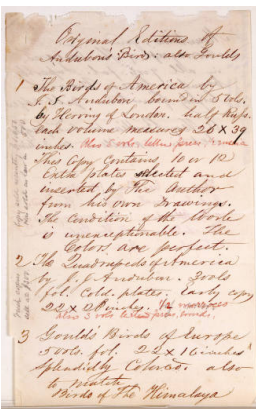 Original Editions of
Audubon's Birds also Goulds
1 The Birds of America by
J. J. Audubon bound in 5 Vols.
by Hering of London. half Russ.
Each volume measures 26 X 39
inches. Also 5 vols letter press
This Copy Contains, 10 or 12
Extra plates selected and
inserted by The Author
from his own Drawings.
The Condition of the Work
is unexceptionable. The
Colors are perfect.
2 The Quadrupeds of America
by J. J. Audubon. 2 vols
fol. Cold. plates. Early copy
22 X 28 inches. 1/2 morocco
also 3 vols letter press, bound.
3 Gould's Birds of Europe
5 vols. fol. 22 X 16 inches
Splendidly Colored. also
to match
Birds of The Himalaya